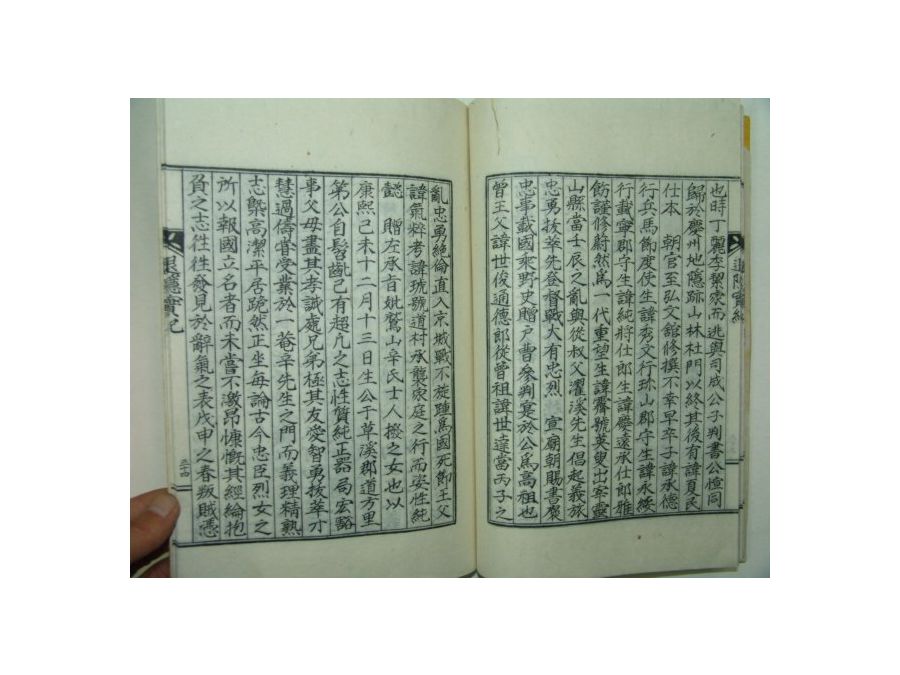 也時丁麗季絜家而逃與司成公子判書公愃同
歸於慶州地隱跡山林杜門以終其後有諱頁民
仕本　朝官至弘文舘修撰不幸早卒子諱承德
行兵馬節度使生諱秀文行珍山郡守生諱永綏
行載寧郡守生諱純將仕郎生諱慶遠承仕郎雅
飭謹修蔚然爲一代重望生諱霽號英叟出宰靈
山縣當壬辰之亂與從叔父濯溪先生倡起義旅
忠勇拔萃先登督戰大有忠烈　宣廟朝賜書褒
忠事載國乘野史贈戶曹參判寔於公爲高祖也
曾王父諱世俊通德郎從曾祖諱世達當丙子之
亂忠勇絶倫直入京城戰不旋踵爲國死節王父
諱氣粹考諱琥號道村承襲家庭之行而姿性純
懿　贈左承旨妣鷲山辛氏士人撥之女也以
康熙己未十二月十三日生公于草溪郡道方里
第公自髫齔已有超凡之志性質純正器局宏豁
事父母盡其孝誠處兄弟極其友愛智勇拔萃才
慧過儔甞受業於一菴辛先生之門而義理精熟
志槩高潔平居跪然正坐每論古今忠臣烈女之
所以報國立名者而未嘗不激昂慷慨其經綸抱
負之志徃徃發見於辭氣之表戊申之春叛賊憑
退隱實紀
三十四